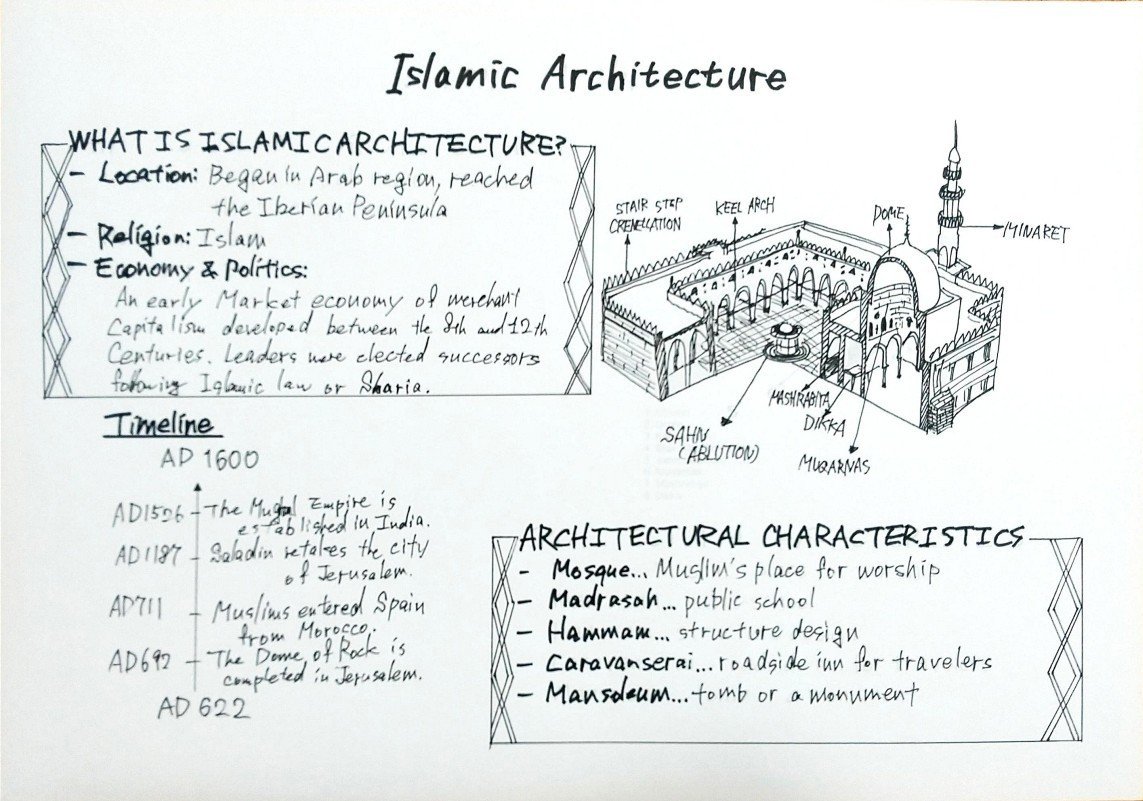 Islamic Architecture
WHAT IS ISLAMIC ARCHITECTURE?
- Location: Began in Arab region, reached
the Iberian Peninsula
- Religion: Islam
- Economy & Politics:
An early Market economy of merchant
Capitalism developed between the 8th and 12th
Centuries. Leaders were elected successors
following Islamic law or Sharia.
STAIR STEP
CRENELLATION
KEEL ARCH
DOME
MINARET
MASHRABIYA
DIKKA
SAHN
(ABLUTION)
MUQARNAS
Timeline
AD 1600
AD1526 - The Mughal Empire is
established in India.
AD1187 - Saladin retakes the city
of Jerusalem.
AD711 - Muslims entered Spain
from Morocco.
AD692 - The Dome of Rock is
completed in Jerusalem.
AD 622
ARCHITECTURAL CHARACTERISTICS
- Mosque... Muslim's place for worship
- Madrasah... public school
- Hammam... structure design
- Caravanserai... roadside inn for travelers
- Mansoleum... tomb or a monument